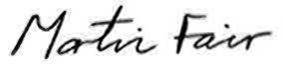 Martin Fair